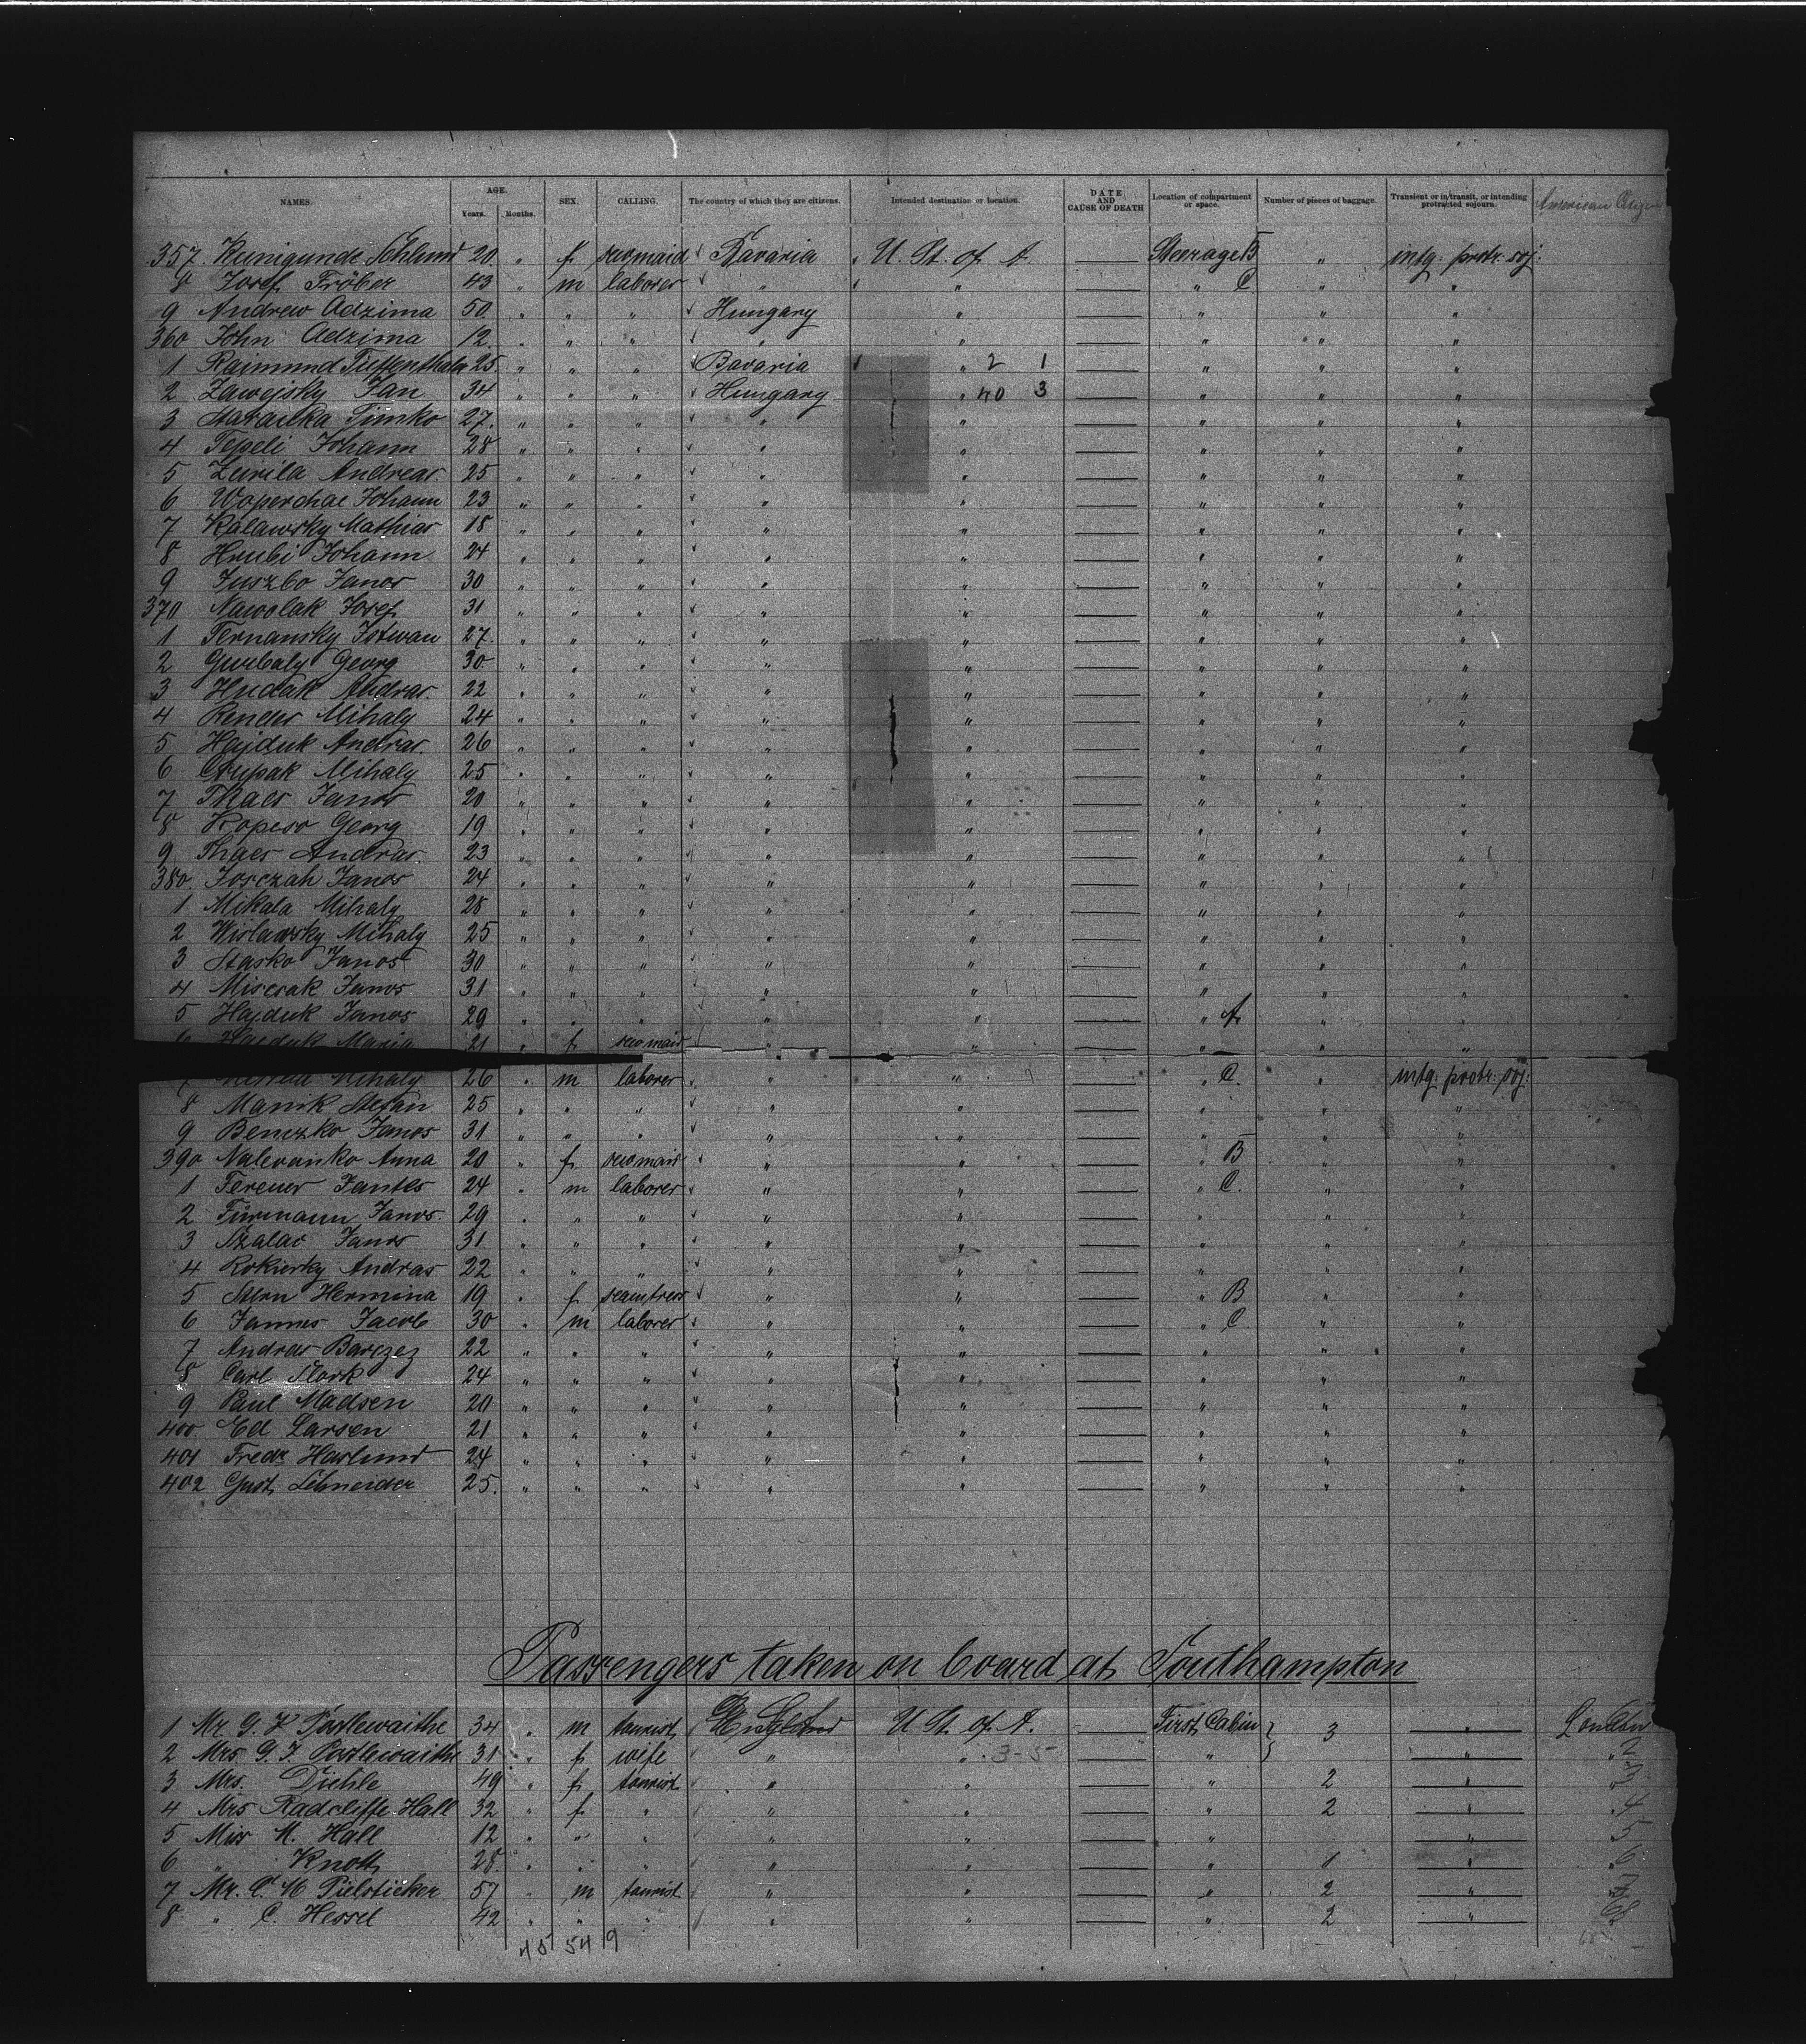 NAMES. AGE. Years. Months. SEX. CALLING. The country of which they are citizens. Intended destination or location. DATE AND CAUSE OF DEATH Location of compartment or space. Number of pieces of baggage. Transient or in transit, or intending protracted sojourn. American
357 Kunigunde Schlund 20 " f servmaid Bavaria U. St. of A. — Steerage B " intg. protr. soj.
8 Josef Fröber 43 " m laborer " " — " C " "
9 Andrew Adzima 50 " " " Hungary " — " " "
360 John Adzima 12 " " " " " — " " "
1 Raimund Tieffenthaler 25 " " " Bavaria " 2 1 — " " "
2 Zawejsky Jan 34 " " " Hungary " 40 3 — " " "
3 Timko 27 " " " " " — " " "
4 Johann 28 " " " " " — " " "
5 Zurila Andreas 25 " " " " " — " " "
6 Johann 23 " " " " " — " " "
7 Kalawsky Mathias 18 " " " " " — " " "
8 Hrubi Johann 24 " " " " " — " " "
9 Juszbo Janos 30 " " " " " — " " "
370 Nawolak Josef 31 " " " " " — " " "
1 Ternansky Istwan 27 " " " " " — " " "
2 Georg 30 " " " " " — " " "
3 Hudak Andras 22 " " " " " — " " "
4 Render Mihaly 24 " " " " " — " " "
5 Hajduk Andras 26 " " " " " — " " "
6 Mihaly 25 " " " " " — " " "
7 Tkacs Janos 20 " " " " " — " " "
8 Georg 19 " " " " " — " " "
9 Thacs Andras 23 " " " " " — " " "
380 Josczah Janos 24 " " " " " — " " "
1 Mikala Mihaly 28 " " " " " — " " "
2 Wislawsky Mihaly 25 " " " " " — " " "
3 Stasko Janos 30 " " " " " — " " "
4 Miscsak Janos 31 " " " " " — " " "
5 Hajduk Janos 29 " " " " " — " A " "
6 Hajduk Maria 21 " f servmaid " " — " " "
Mihaly 26 " m laborer " " — " C. " intg. protr. soj.
8 Manik Stefan 25 " " " " " — " " "
9 Benczko Janos 31 " " " " " — " " "
390 Nalevanko Anna 20 " f servmaid " " — " B " "
1 Ferencz 24 " m laborer " " — " C. " "
2 Fürmann Janos 29 " " " " " — " " "
3 Szalai Janos 31 " " " " " — " " "
4 Rokicsky Andras 22 " " " " " — " " "
5 Stern Hermina 19 " f seamstress " " — " B " "
6 Jannes Jacob 30 " m laborer " " — " C " "
7 Andras Barczez 22 " " " " " — " " "
8 Carl Stork 24 " " " " " — " " "
9 Paul Madsen 20 " " " " " — " " "
400 Ed Larsen 21 " " " " " — " " "
401 Fredr Haslund 24 " " " " " — " " "
402 Gust. Schneider 25 " " " " " — " " "
Passengers taken on board at Southampton
1 Mr G. F. Postlewaithe 34 " m tourist England U St. of A. — First Cabin } 3 — " — London
2 Mrs G. F. Postlewaithe 31 " f wife " " 3-5 — " — " — " 2
3 Mrs. Diehle 49 " f tourist " " — " 2 — " — " 3
4 Mrs Radcliffe-Hall 32 " f " " " — " 2 — " — " 4
5 Miss M. Hall 12 " " " " " — " — " — " 5
6 " Knott 28 " " " " " — " 1 — " — " 6
7 Mr. C. M Pielsticker 57 " m tourist " " — " 2 — " — " 7
8 " C. Hessel 42 " " " " " — " 2 — " — 8
45 54 9